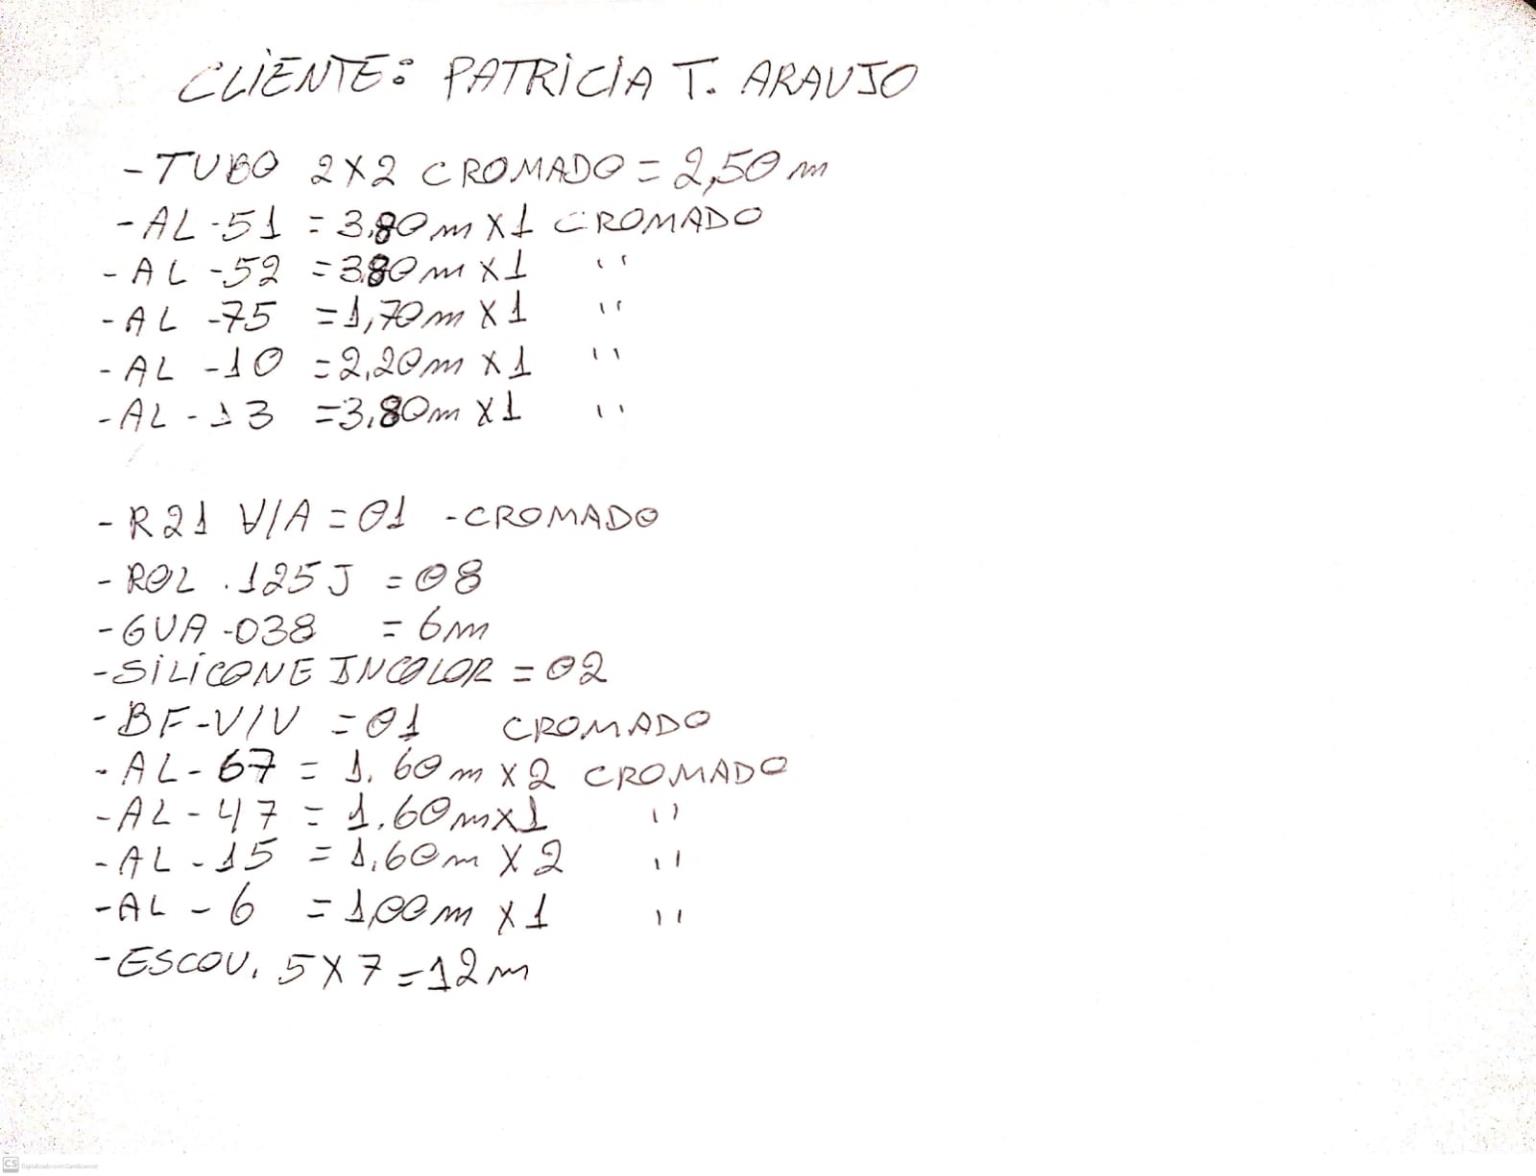 CLIENTE: PATRICIA T. ARAUJO
- TUBO 2X2 CROMADO = 2,50 m
- AL-51 = 3,80 m X1 CROMADO
- AL-52 = 3,80 m X1 "
- AL-75 = 1,70 m X1 "
- AL-10 = 2,20 m X1 "
- AL-13 = 3,80 m X1 "
- R21 V/A = 01 - CROMADO
- ROL.125J = 08
- GUA-038 = 6m
- SILICONE INCOLOR = 02
- BF-V/V = 01 CROMADO
- AL-67 = 1.60 m X2 CROMADO
- AL-47 = 1.60 m X1 "
- AL-15 = 1,60 m X2 "
- AL-6 = 1,00 m X1 "
- ESCOV. 5X7 = 12 m
CS Digitalizado com CamScanner